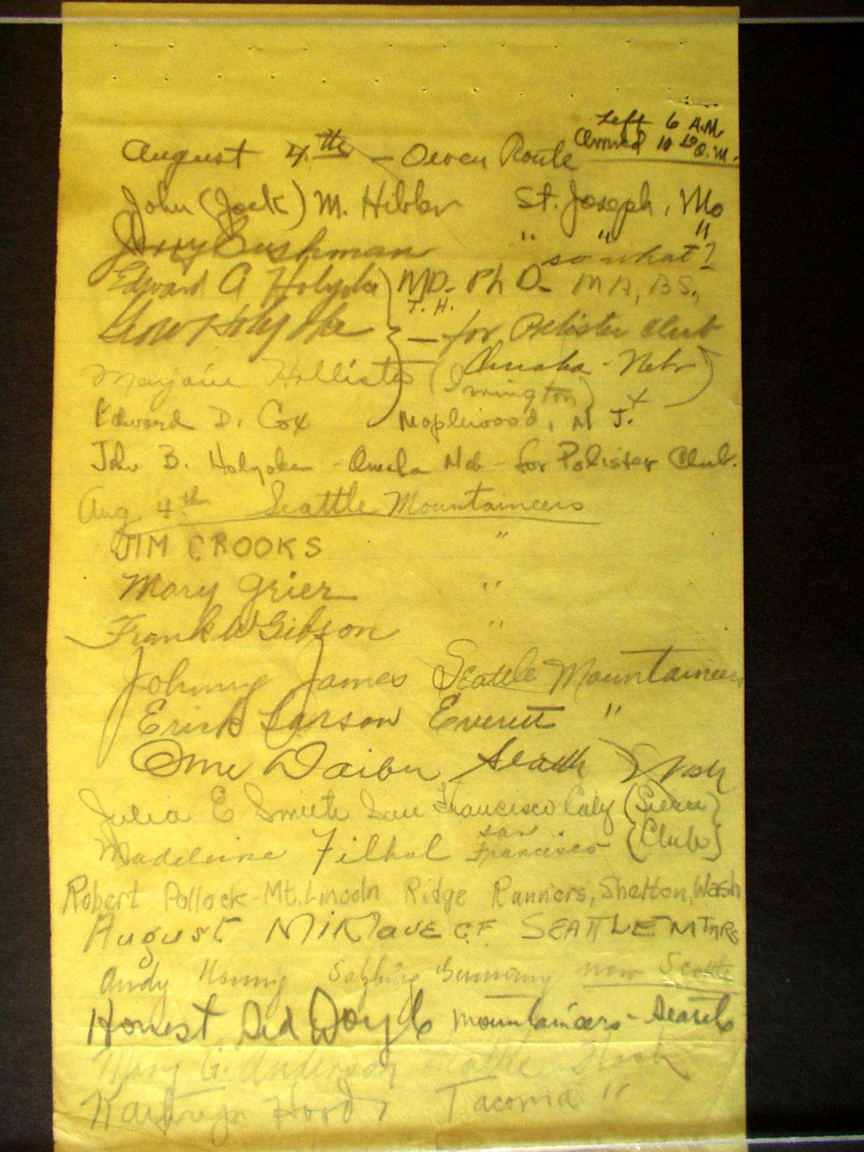 Left 6 A.M.
August 4th - Owen Route Arrived 10 A.M.
John (Jack) M. Hibler St. Joseph, Mo
Jerry Bushman " " "
so what?
Edward A Holyoke MD- Ph D- MA, BS,
T. H.
Holyoke - for Polister Club
Marjorie Hollister (Omaha - Nebr
Irvington)
Edward D. Cox Maplewood, N J.
John B. Holyoke - Omaha Neb - for Polister Club.
Aug 4th Seattle Mountaineers
JIM CROOKS "
Mary Grier "
Frank W Gibson "
Johnny James Seattle Mountaineers
Erick Larson Everett "
Ome Daiber Seattle Wash
Julia E Smith San Francisco Caly (Sierra
Madeleine Filhol San Francisco Club)
Robert Pollock - Mt. Lincoln Ridge Runners, Shelton, Wash
August OF SEATTLE MTNRS
Andy Hennig Germany now Seattle
Honest Doyle Mountaineers - Seattle
Mary G. Anderson Seattle Wash
Kathryn Hood, Tacoma "